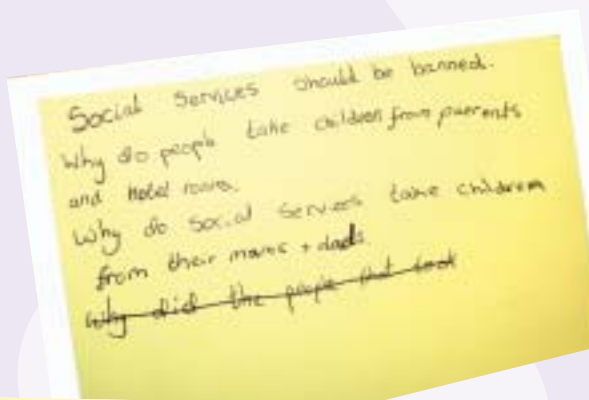 Social Services should be banned.
Why do people take children from parents
and hotel rooms.
Why do Social Services take children
from their mams + dads
Why did the people that took